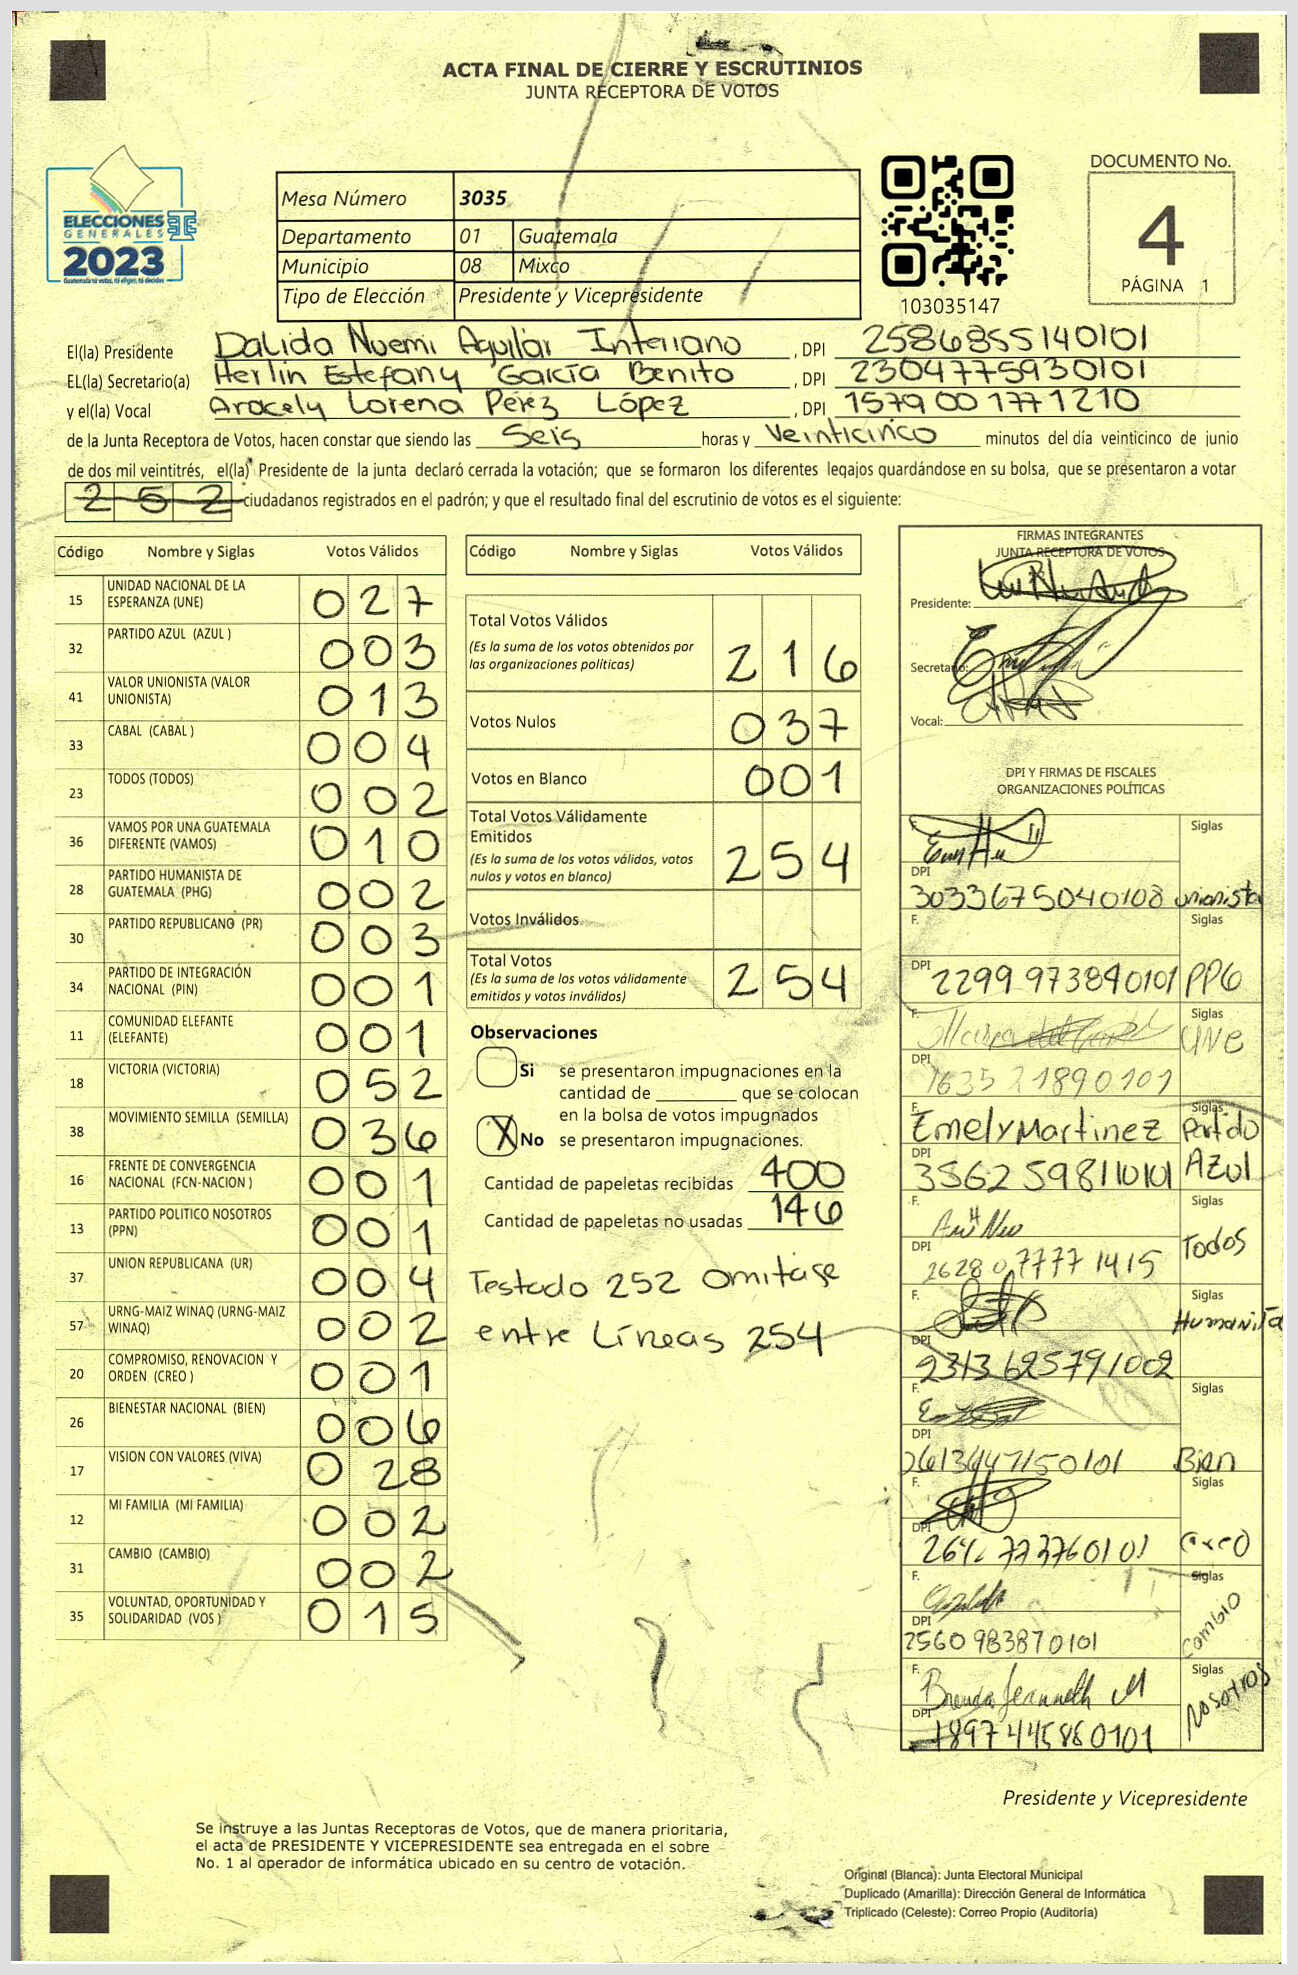 ACTA FINAL DE CIERRE Y ESCRUTINIOS
JUNTA RECEPTORA DE VOTOS
ELECCIONES
GENERALES
2023
Guatemala tú votas, tú eliges, tú decides
Mesa Número 3035
Departamento 01 Guatemala
Municipio 08 Mixco
Tipo de Elección Presidente y Vicepresidente
103035147
DOCUMENTO No.
4
PÁGINA 1
El(la) Presidente Dalida Noemi Aguilar Interiano , DPI 2586855140101
EL(la) Secretario(a) Herlin Estefany García Benito , DPI 2304775930101
y el(la) Vocal Aracely Lorena Pérez López , DPI 1579001771210
de la Junta Receptora de Votos, hacen constar que siendo las Seis horas y Veinticinco minutos del día veinticinco de junio
de dos mil veintitrés, el(la) Presidente de la junta declaró cerrada la votación; que se formaron los diferentes legajos guardándose en su bolsa, que se presentaron a votar
252 ciudadanos registrados en el padrón; y que el resultado final del escrutinio de votos es el siguiente:
Código Nombre y Siglas Votos Válidos
15 UNIDAD NACIONAL DE LA ESPERANZA (UNE) 027
32 PARTIDO AZUL (AZUL ) 003
41 VALOR UNIONISTA (VALOR UNIONISTA) 013
33 CABAL (CABAL ) 004
23 TODOS (TODOS) 002
36 VAMOS POR UNA GUATEMALA DIFERENTE (VAMOS) 010
28 PARTIDO HUMANISTA DE GUATEMALA (PHG) 002
30 PARTIDO REPUBLICANO (PR) 003
34 PARTIDO DE INTEGRACIÓN NACIONAL (PIN) 001
11 COMUNIDAD ELEFANTE (ELEFANTE) 001
18 VICTORIA (VICTORIA) 052
38 MOVIMIENTO SEMILLA (SEMILLA) 036
16 FRENTE DE CONVERGENCIA NACIONAL (FCN-NACION ) 001
13 PARTIDO POLITICO NOSOTROS (PPN) 001
37 UNION REPUBLICANA (UR) 004
57 URNG-MAIZ WINAQ (URNG-MAIZ WINAQ) 002
20 COMPROMISO, RENOVACION Y ORDEN (CREO ) 001
26 BIENESTAR NACIONAL (BIEN) 006
17 VISION CON VALORES (VIVA) 028
12 MI FAMILIA (MI FAMILIA) 002
31 CAMBIO (CAMBIO) 002
35 VOLUNTAD, OPORTUNIDAD Y SOLIDARIDAD (VOS ) 015
Código Nombre y Siglas Votos Válidos
Total Votos Válidos
(Es la suma de los votos obtenidos por
las organizaciones políticas) 216
Votos Nulos 037
Votos en Blanco 001
Total Votos Válidamente
Emitidos
(Es la suma de los votos válidos, votos
nulos y votos en blanco) 254
Votos Inválidos
Total Votos
(Es la suma de los votos válidamente
emitidos y votos inválidos) 254
Observaciones
Si se presentaron impugnaciones en la
cantidad de ________ que se colocan
en la bolsa de votos impugnados
X No se presentaron impugnaciones.
Cantidad de papeletas recibidas 400
Cantidad de papeletas no usadas 146
Testado 252 Omitase
entre Líneas 254
FIRMAS INTEGRANTES
JUNTA RECEPTORA DE VOTOS
Presidente:
Secretario:
Vocal:
DPI Y FIRMAS DE FISCALES
ORGANIZACIONES POLÍTICAS
F. Siglas
DPI 3033675040108 unionista
F. Siglas
DPI 2299973840101 PPG
F. Siglas
UNE
DPI 1635 21890101
F. Emely Martinez Siglas Partido
DPI 3562598110101 Azul
F. Siglas
DPI Todos
F. Siglas
Humanista
DPI 2313625791002
F. Siglas
DPI Bien
F. Siglas
DPI Creo
F. Siglas
DPI 2560983870101 Cambio
F. Brenda Jeanneth M Siglas
DPI 1897445860101 Nosotros
Presidente y Vicepresidente
Se instruye a las Juntas Receptoras de Votos, que de manera prioritaria,
el acta de PRESIDENTE Y VICEPRESIDENTE sea entregada en el sobre
No. 1 al operador de informática ubicado en su centro de votación.
Original (Blanca): Junta Electoral Municipal
Duplicado (Amarilla): Dirección General de Informática
Triplicado (Celeste): Correo Propio (Auditoría)